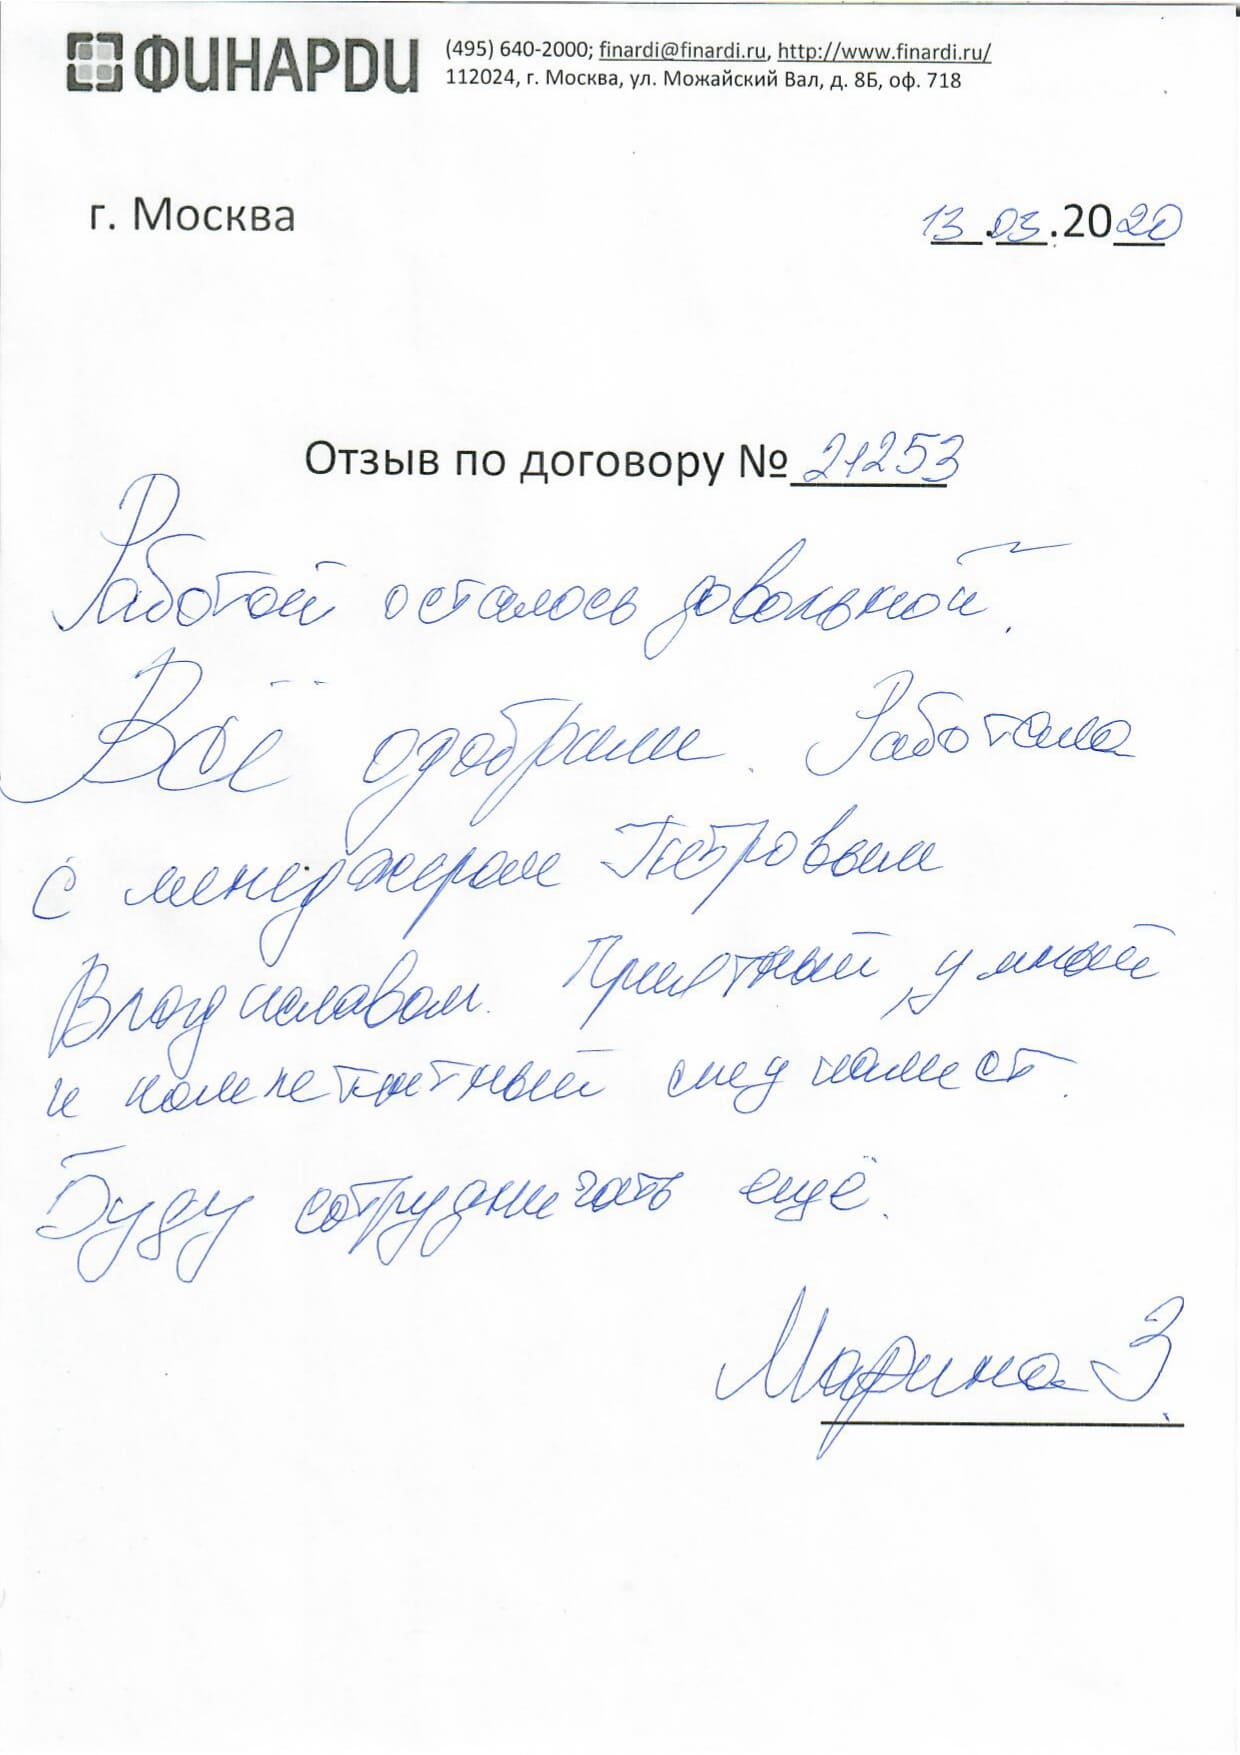 ФИНАРДИ
(495) 640-2000; finardi@finardi.ru, http://www.finardi.ru/
112024, г. Москва, ул. Можайский Вал, д. 8Б, оф. 718
г. Москва
13.03.2020
Отзыв по договору № 21253
Работой осталось довольной.
Всё одобрили. Работала
с менеджером Петровым
Владиславом. Приятный умный
и компетентный специалист.
Буду сотрудничать ещё.
Марина З.